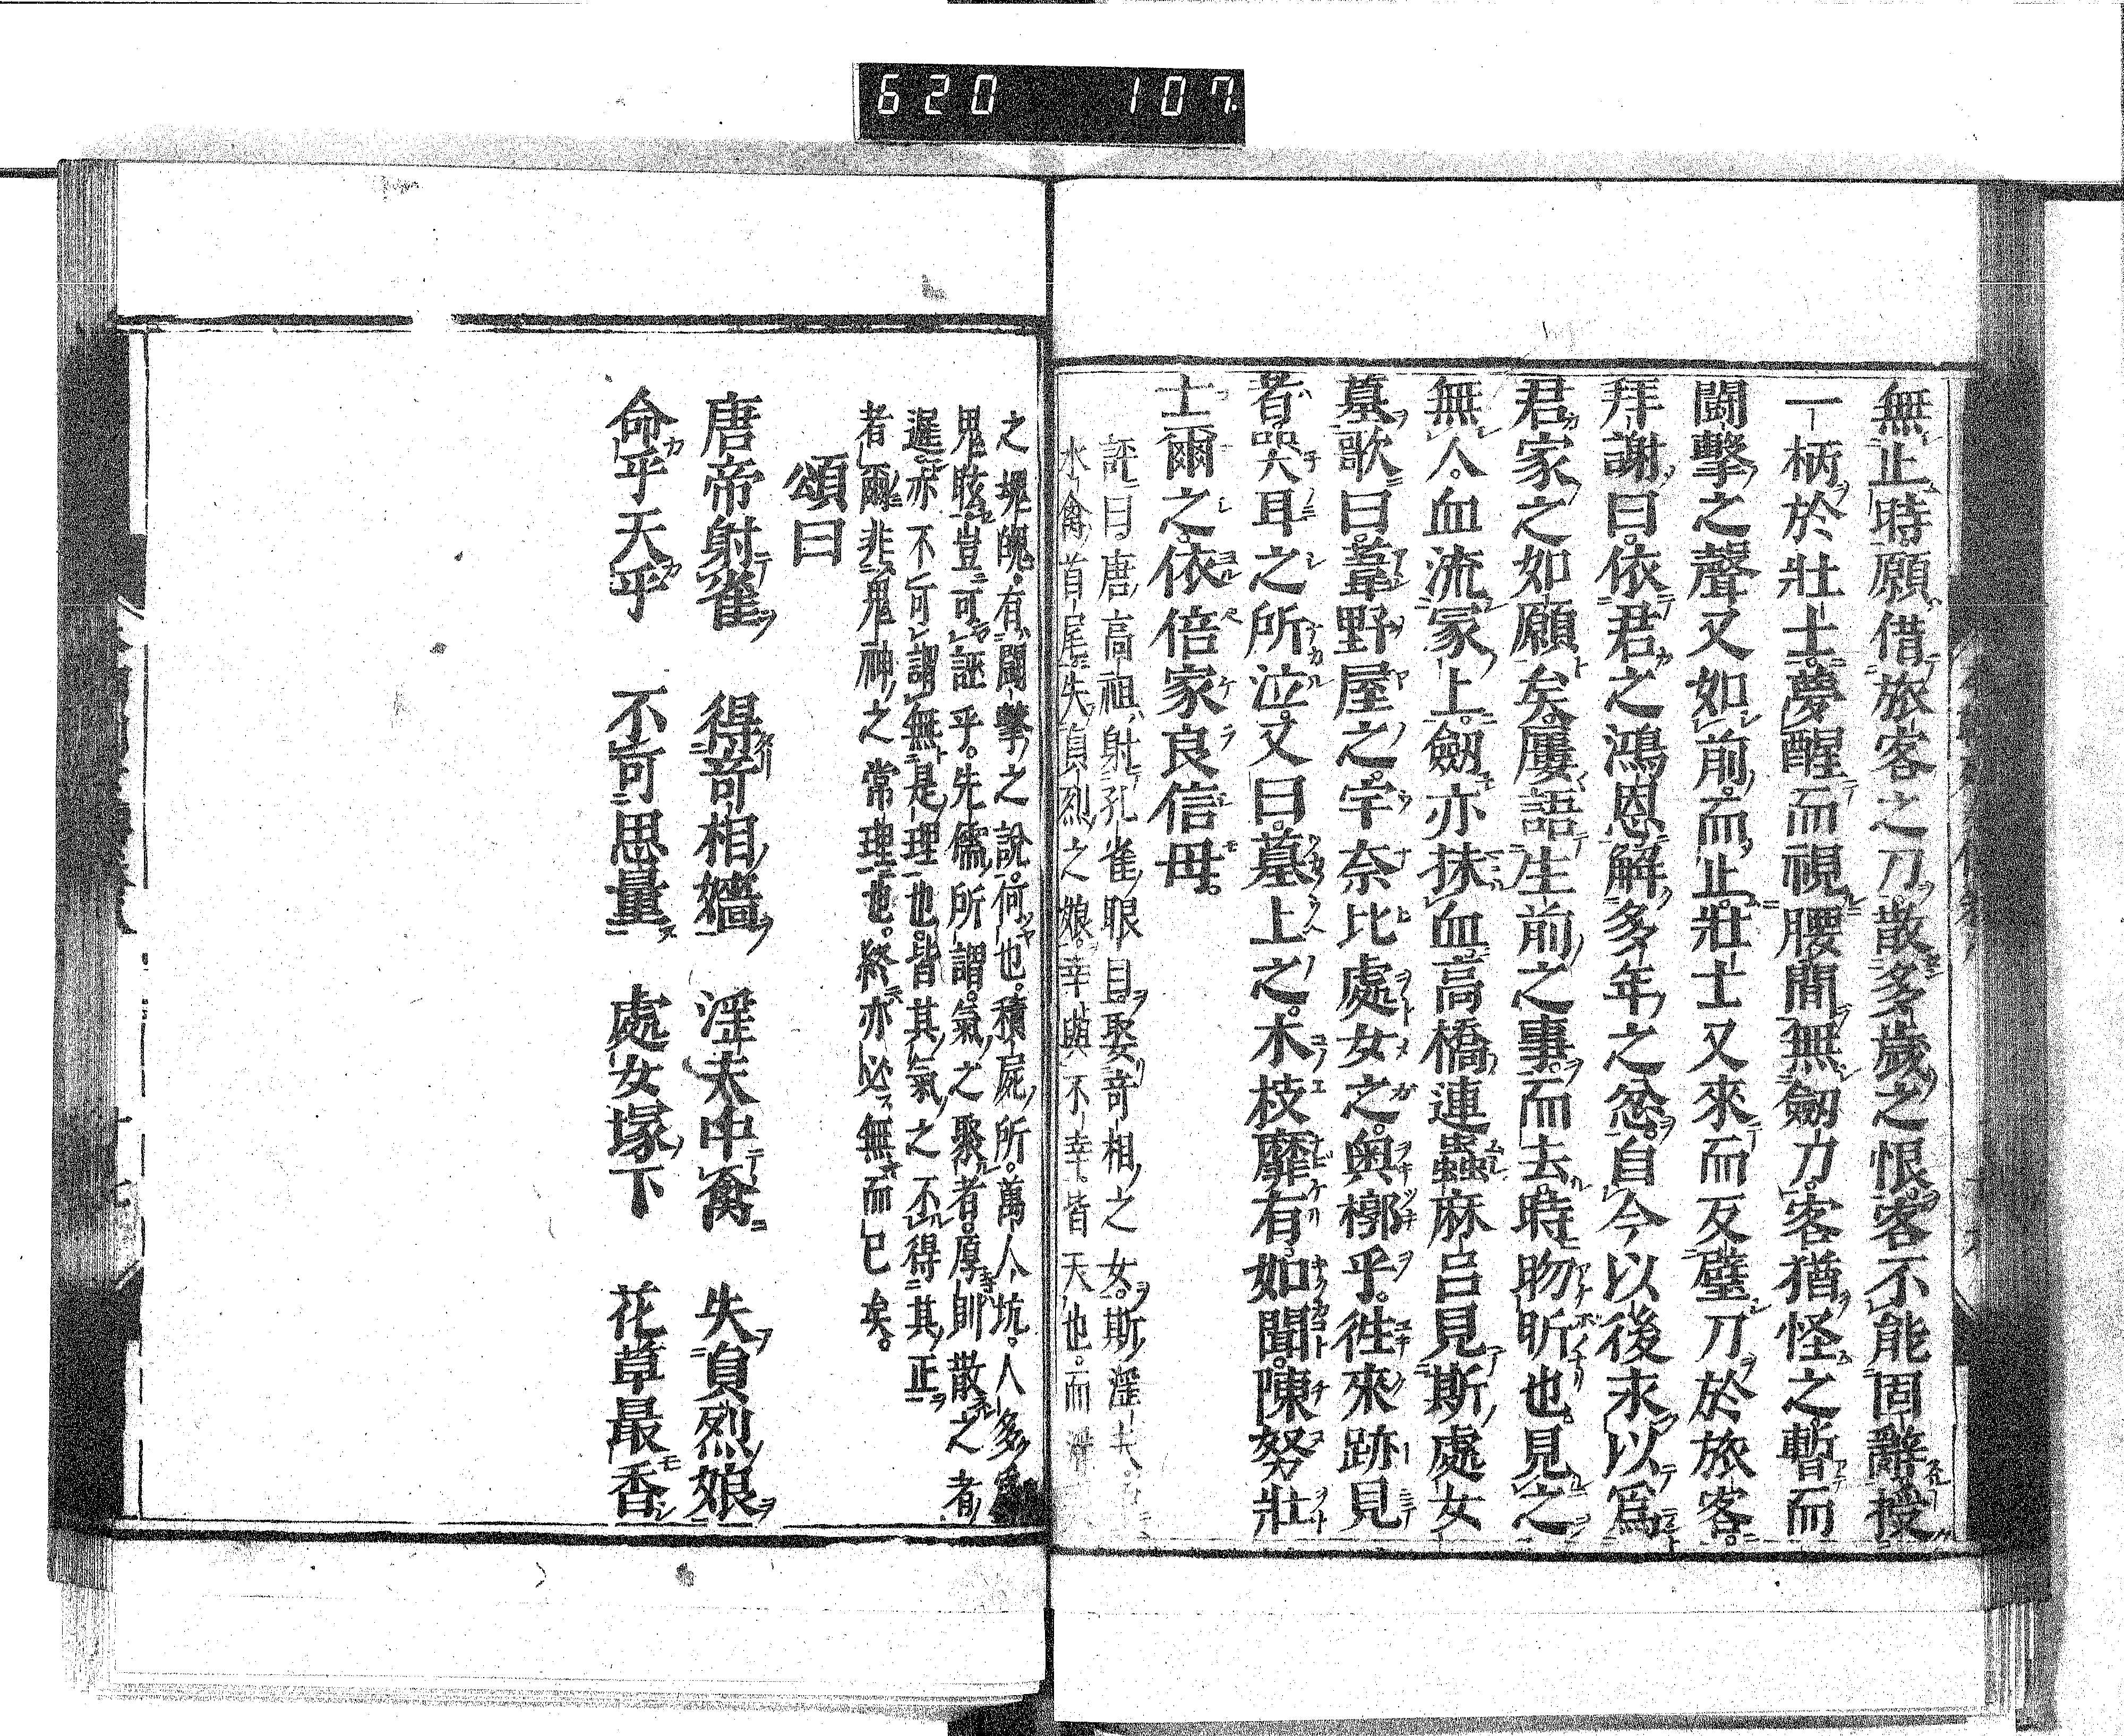 620 107
無止時願借旅客之刀散多歲之恨客不能固辭授
一柄於壯士夢醒而視腰間無劒刀客猶怪之暫而
鬪擊之聲又如前而止壯士又來而反璧刀於旅客
拜謝曰依君之鴻恩解多年之忿自今以後永以爲
君家之如願矣屢語生前之事而去時昒昕也見之
無人血流冢上劒亦抹血高橋連蟲麻呂見斯處女
墓歌曰葦野屋之宇奈比處女之奥槨乎徃來跡見
者哭耳之所泣又曰墓上之木枝靡有如聞陳努壯
士爾之依倍家良信母
評曰唐高祖射孔雀眼目娶奇相之女斯淫夫
水禽首尾失貞烈之娘幸與不幸皆天也而
之塊魄有鬪擊之說何也積屍所萬人坑人多
鬼眩豈可誣乎先儒所謂氣之聚者厚則散之者
遲亦不可謂無是理也皆其氣之不得其正
者爾非鬼神之常理也終亦必無而已矣
頌曰
唐帝射雀 得奇相嬙 淫夫中禽 失貞烈娘
命乎天乎 不可思量 處女塚下 花草最香